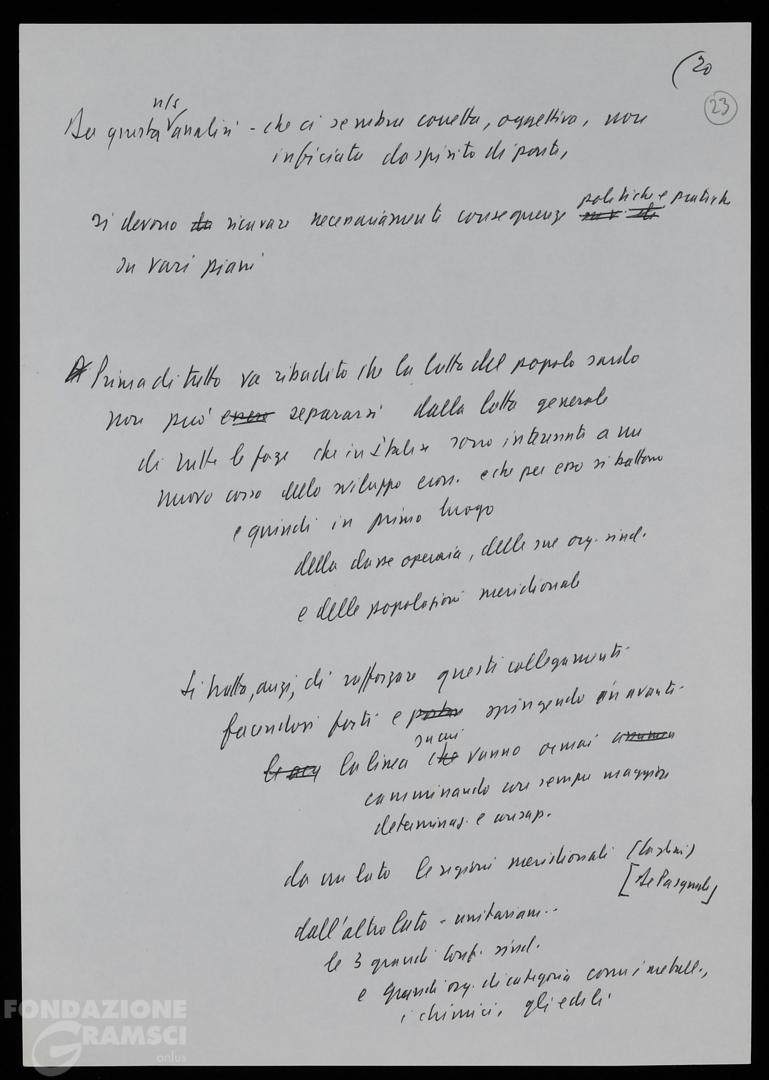 (20
23
n/s
Da questa analisi - che ci sembra corretta, oggettiva, non
inficiata da spirito di parte,
politiche e pratiche
si devono ricavare necessariamente conseguenze
su vari piani
Prima di tutto va ribadito che la lotta del popolo sardo
non può essere separarsi dalla lotta generale
di tutte le forze che in Italia sono interessate a un
nuovo corso dello sviluppo econ. e che per esso si battono
e quindi in primo luogo
della classe operaia, delle sue org. sind.
e delle popolazioni meridionali
Si tratta, anzi, di rafforzare questi collegamenti
facendosi forti e portare spingendo in avanti
su cui
la linea che vanno ormai
camminando con sempre maggiore
determinaz. e consap.
da un lato le regioni meridionali
[De Pasquale]
dall'altro lato - unitariam..
le 3 grandi conf. sind.
e grandi org. di categoria come i metall.,
i chimici, gli edili
FONDAZIONE
GRAMSCI
onlus